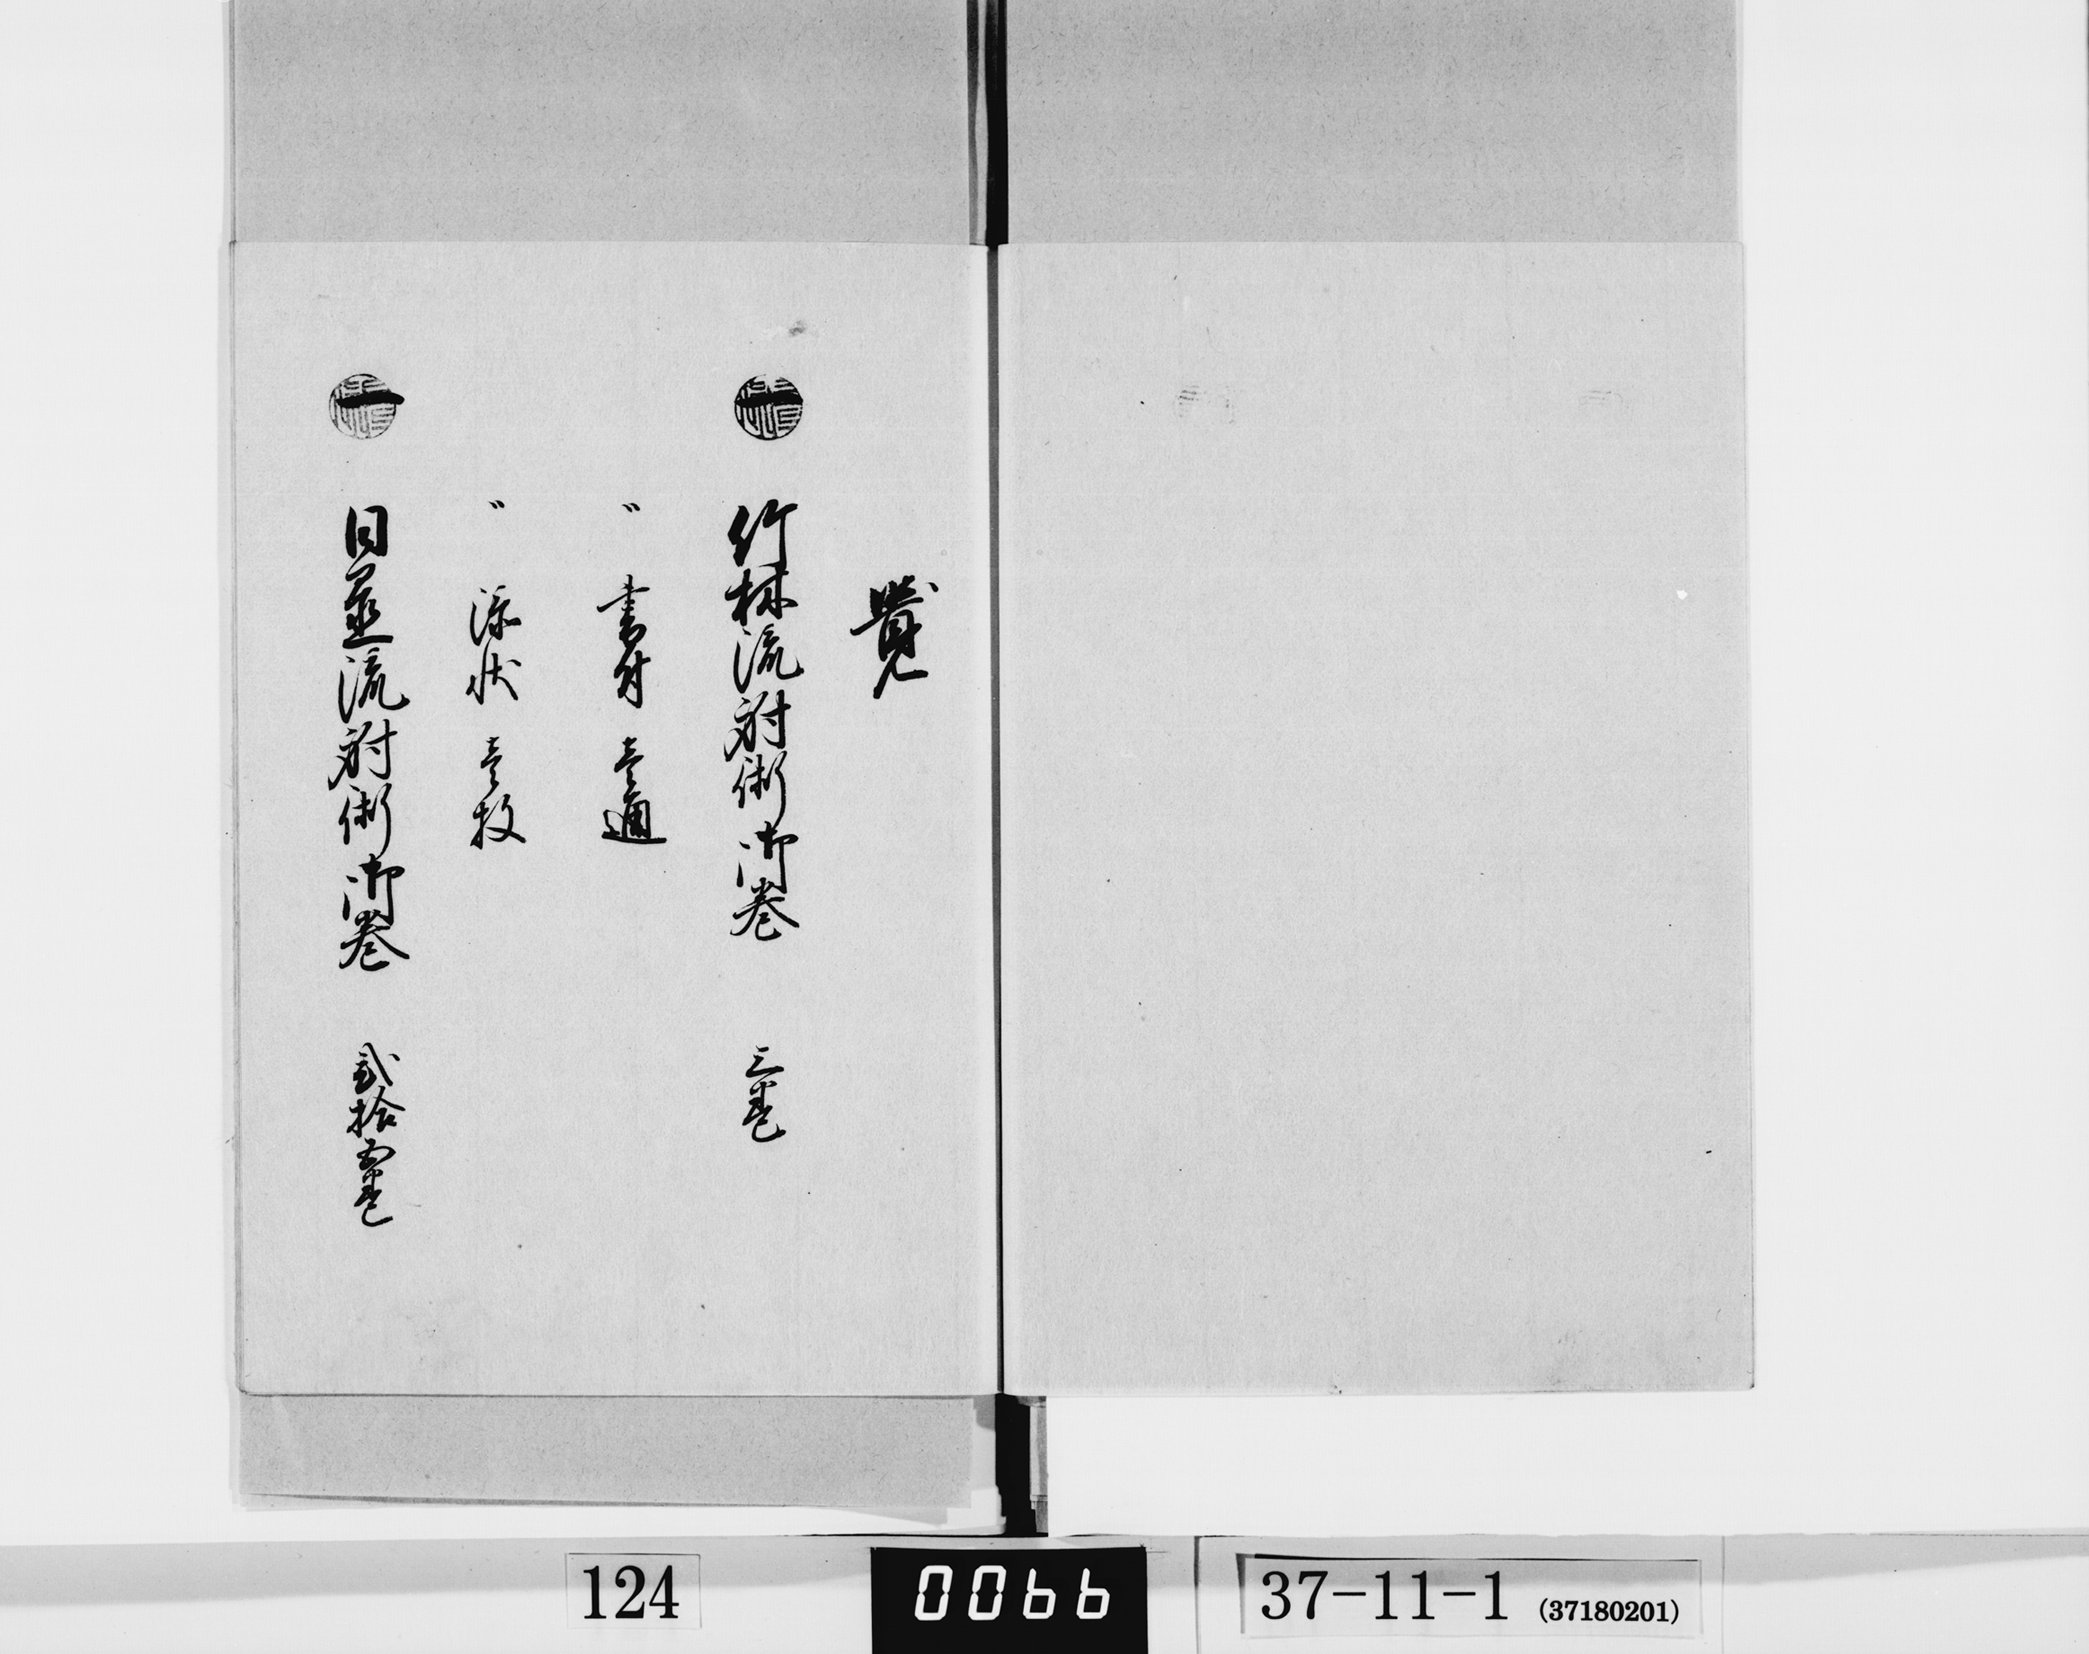 覺
一 竹林流射術御巻 三巻
〃 書付 壱通
〃 添状 壱枚
一 日置流射術御巻 弐拾五巻
124
0066
37-11-1 (37180201)